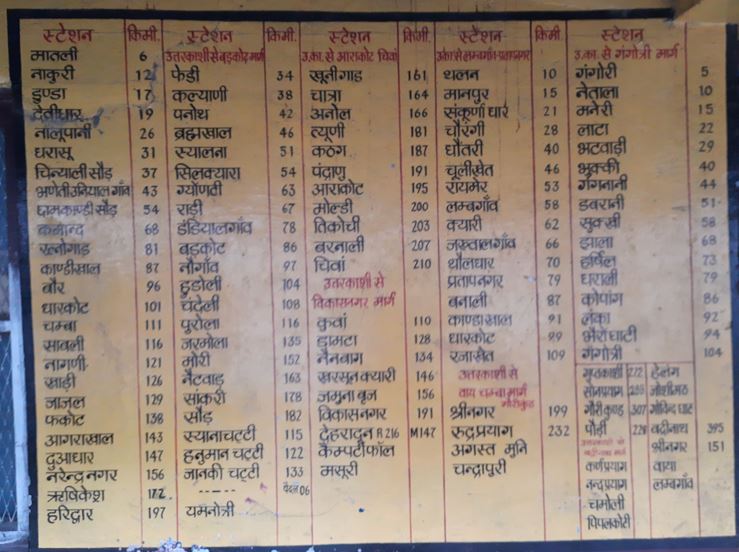 स्टेशन किमी.
मातली 6
नाकुरी 12
डुण्डा 17
देवीधार 19
नालूपानी 26
धरासू 31
चिन्यालीसौड़ 37
भणेतीउनियालगाँव 43
छामकाण्डीसौड़ 54
कमान्द 68
रत्नोगाड़ 81
काण्डीखाल 87
बौर 96
धारकोट 101
चम्बा 111
साबली 116
नागणी 121
खाड़ी 126
जाजल 129
फकोट 138
आगराखाल 143
दुआधार 147
नरेन्द्रनगर 156
ऋषिकेश 172
हरिद्वार 197
स्टेशन किमी.
उत्तरकाशी से बड़कोट मार्ग
फेडी 34
कल्याणी 38
पनोथ 42
ब्रह्मखाल 46
स्यालना 51
सिलक्यारा 54
ग्योंणटी 63
राड़ी 67
डंडियालगाँव 78
बड़कोट 86
नौगाँव 97
हुडोली 104
चंदेली 108
पुरोला 116
जरमोला 135
मोरी 152
नैटवाड़ 163
सांकरी 178
सौड़ 182
स्यानाचट्टी 115
हनुमान चट्टी 122
जानकी चट्टी 133
----- पैदल 06
यमनोत्री
स्टेशन किमी.
उ.का. से आराकोट चिवां
खूनीगाड़ 161
चात्रा 164
अनोल 166
त्यूणी 181
कठंग 187
पंद्राणू 191
आराकोट 195
मोल्डी 200
टिकोची 203
बरनाली 207
चिवां 210
उत्तरकाशी से
विकासनगर मार्ग
कुवां 110
डामटा 128
नैनबाग 134
खरसून क्यारी 146
जमुना बृज 156
विकासनगर 191
देहरादून R 216 M147
कैम्पटीफॉल
मसूरी
स्टेशन किमी.
उ.का. से लम्बगाँव-प्रतापनगर
थलन 10
मानपुर 15
संकूर्णा धार 21
चौरंगी 28
धौंतरी 40
चूलीखेत 46
रायमेर 53
लम्बगाँव 58
क्यारी 62
जखवालगाँव 66
धौलधार 70
प्रतापनगर 79
बनाली 87
काण्डाखाल 91
धारकोट 99
रजाखेत 109
उत्तरकाशी से
वाय चम्बा मार्ग
गौरीकुंड
श्रीनगर 199
रुद्रप्रयाग 232
अगस्त मुनि
चन्द्रापुरी
स्टेशन
उ.का. से गंगोत्री मार्ग
गंगोरी 5
नेताला 10
मनेरी 15
लाटा 22
भटवाड़ी 29
भुक्की 40
गंगनानी 44
डबरानी 51
सुक्खी 58
झाला 68
हर्षिल 73
धराली 79
कोपांग 86
लंका 92
भैरोघाटी 94
गंगोत्री 104
गुप्तकाशी 272
सोनप्रयाग
गौरी कुण्ड 307
पौड़ी
कर्णप्रयाग
नन्दप्रयाग
चमोली
पिपलकोटी
हेलंग
जोशीमठ
गोविन्द घाट
बद्रीनाथ 395
श्रीनगर 151
वाया
लम्बगाँव